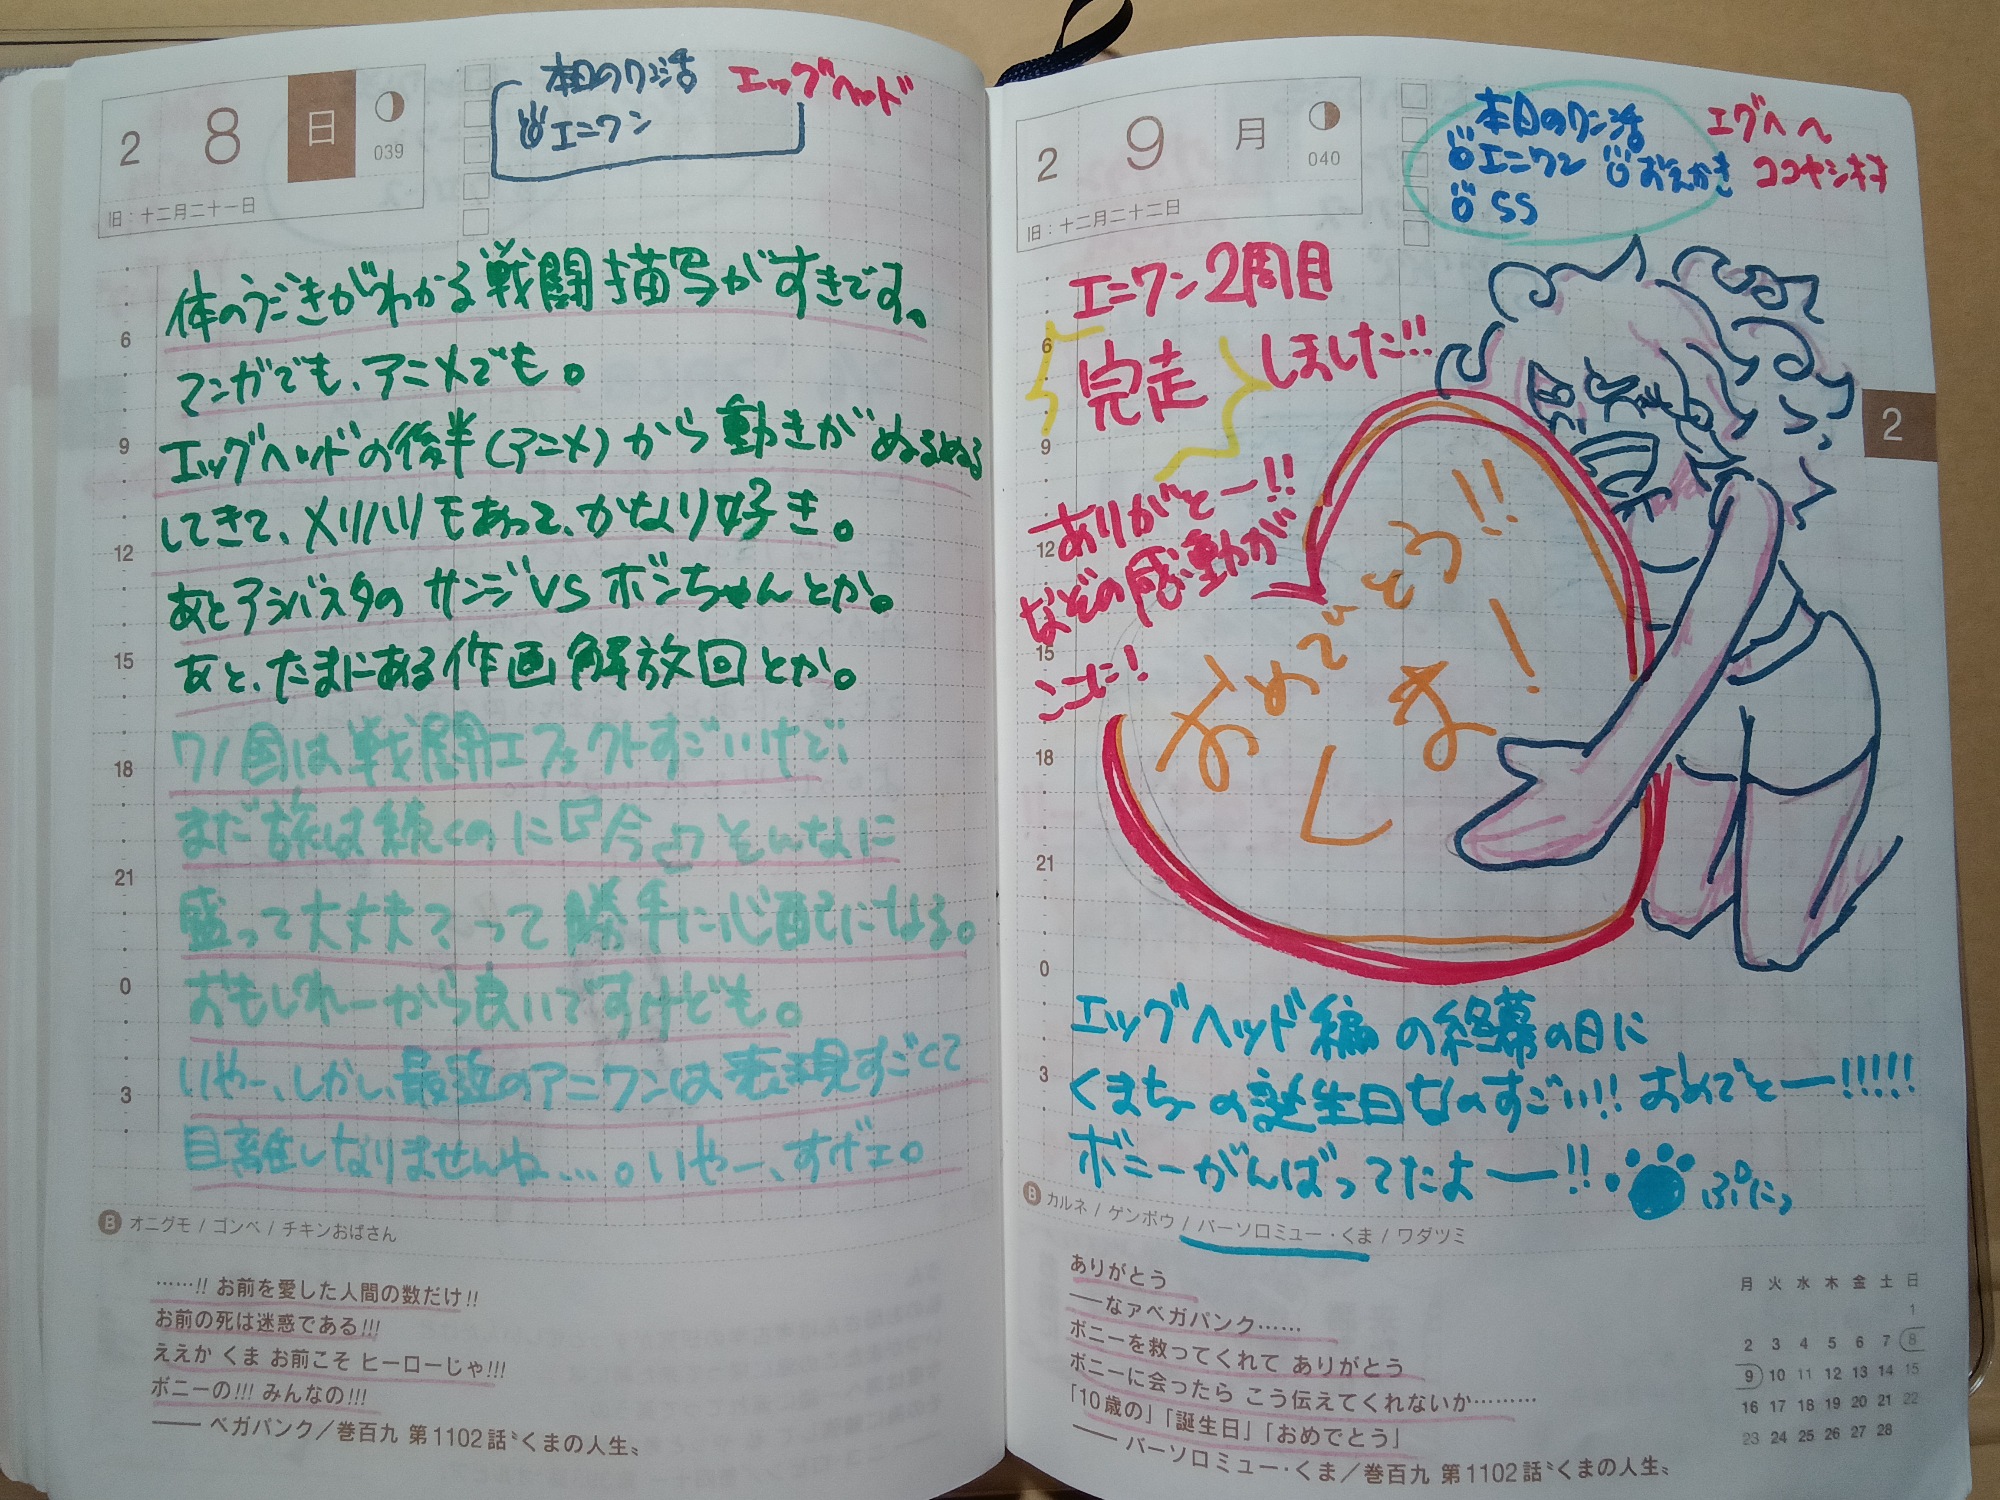 2 8 日
039
旧：十二月二十一日
本日のワン活
エニワン
エッグヘッド
体のうごきがわかる戦闘描写がすきです。
マンガでも、アニメでも。
エッグヘッドの後半(アニメ)から動きがぬるぬる
してきて、メリハリもあって、かなり好き。
あとアラバスタのサンジVSボンちゃんとか。
あと、たまにある作画解放回とか。
ワノ国は戦闘エフェクトすごいけど、
まだ旅は続くのに『今』そんなに
盛って大丈夫?って勝手に心配になる。
おもしれーから良いですけども。
いやー、しかし、最近のアニワンは表現すごくて
目離しなりませんね…。いやー、すげェ。
6
9
12
15
18
21
0
3
B オニグモ / ゴンベ / チキンおばさん
……!! お前を愛した人間の数だけ!!
お前の死は迷惑である!!!
ええか くま お前こそ ヒーローじゃ!!!
ボニーの!!! みんなの!!!
―― ベガパンク／巻百九 第1102話〝くまの人生〟
2 9 月
040
旧：十二月二十二日
本日のワン活
エニワン おえかき
SS
エグヘへ
ココヤシ村
エニワン2周目
完走しました!!
ありがとー!!
などの感動が
ここに!
おめでとう!!
しま!
2
エッグヘッド編の終幕の日に
くまちーの誕生日なのすごい!! おめでとー!!!!!
ボニーがんばってたよー!! ぷにっ
6
9
12
15
18
21
0
3
B カルネ / ゲンボウ / バーソロミュー・くま / ワダツミ
ありがとう
――なァベガパンク……
ボニーを救ってくれて ありがとう
ボニーに会ったら こう伝えてくれないか………
「10歳の」「誕生日」「おめでとう」
―― バーソロミュー・くま／巻百九 第1102話〝くまの人生〟
月 火 水 木 金 土 日
1
2 3 4 5 6 7 8
9 10 11 12 13 14 15
16 17 18 19 20 21 22
23 24 25 26 27 28